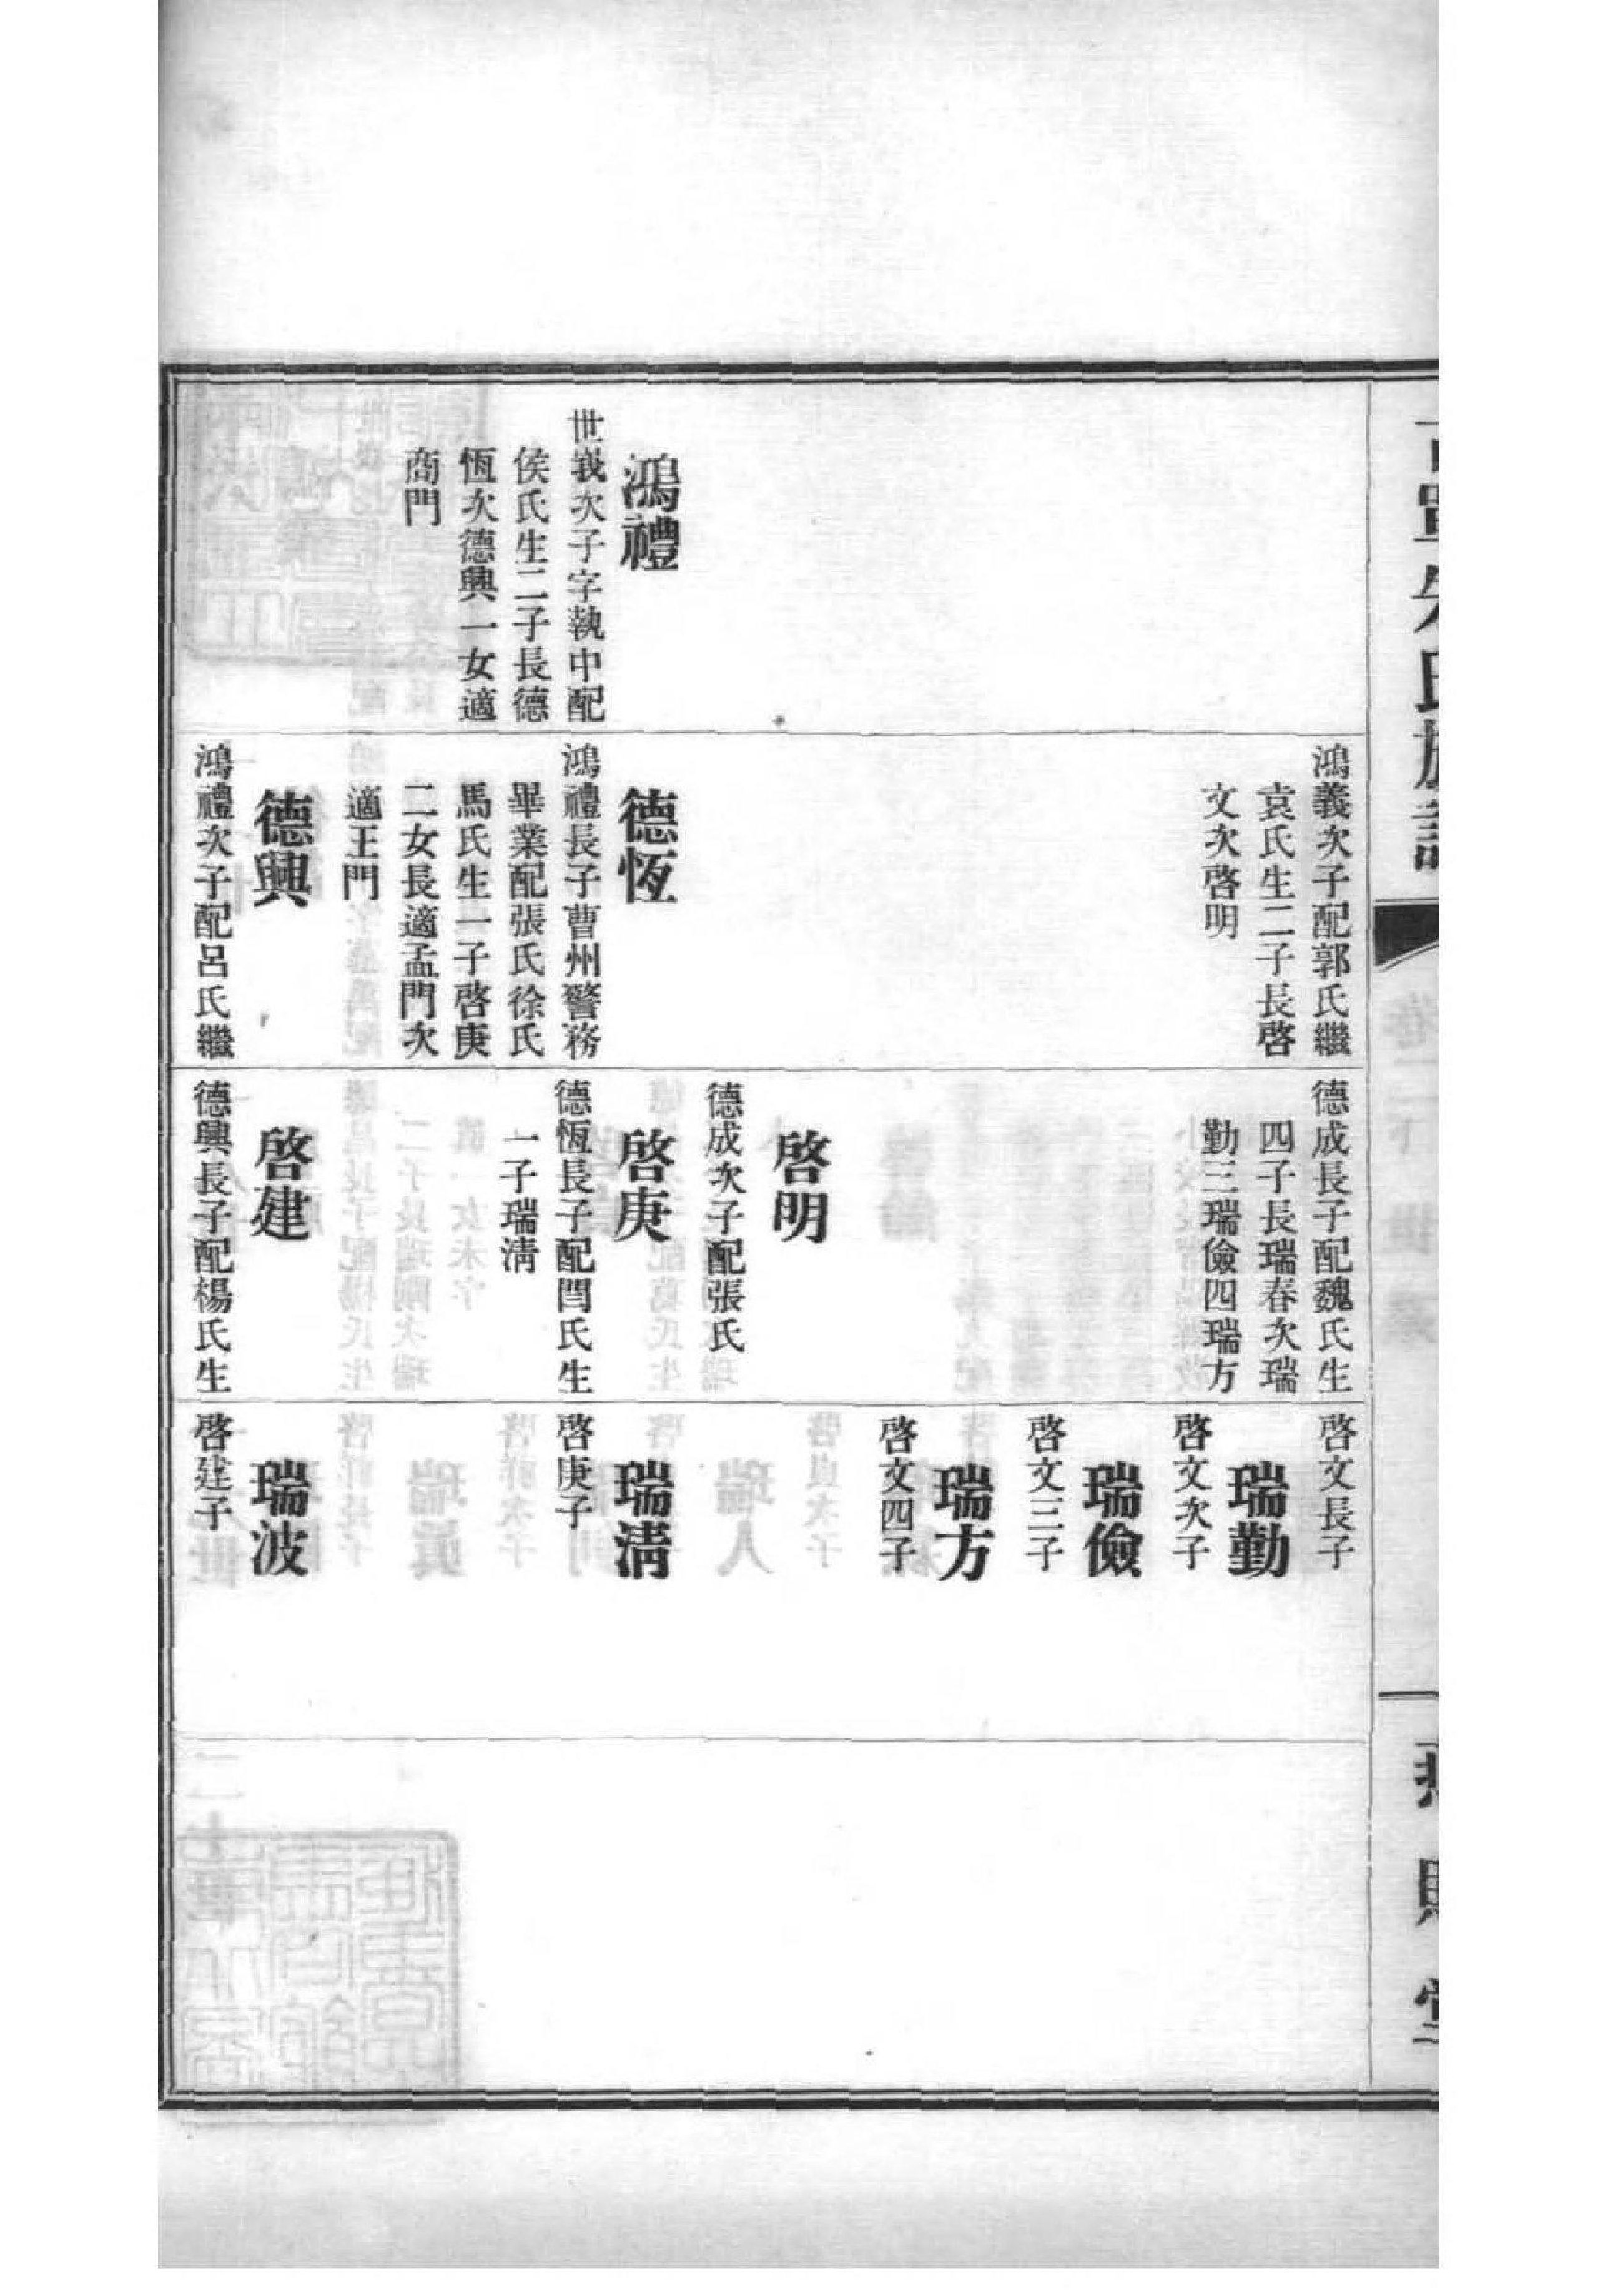 氏族
鴻禮
世義次子字執中配
侯氏生二子長德
恆次德興一女適
商門
鴻義次子配郭氏繼
袁氏生二子長啓
文次啓明
德恆
鴻禮長子曹州警務
畢業配張氏徐氏
馬氏生一子啓庚
二女長適孟門次
適王門
德興
鴻禮次子配呂氏繼
德成長子配魏氏生
四子長瑞春次瑞
勤三瑞儉四瑞方
啓明
德成次子配張氏
啓庚
德恆長子配閆氏生
一子瑞淸
啓建
德興長子配楊氏生
啓文長子
瑞勤
啓文次子
瑞儉
啓文三子
瑞方
啓文四子
瑞淸
啓庚子
瑞波
啓建子